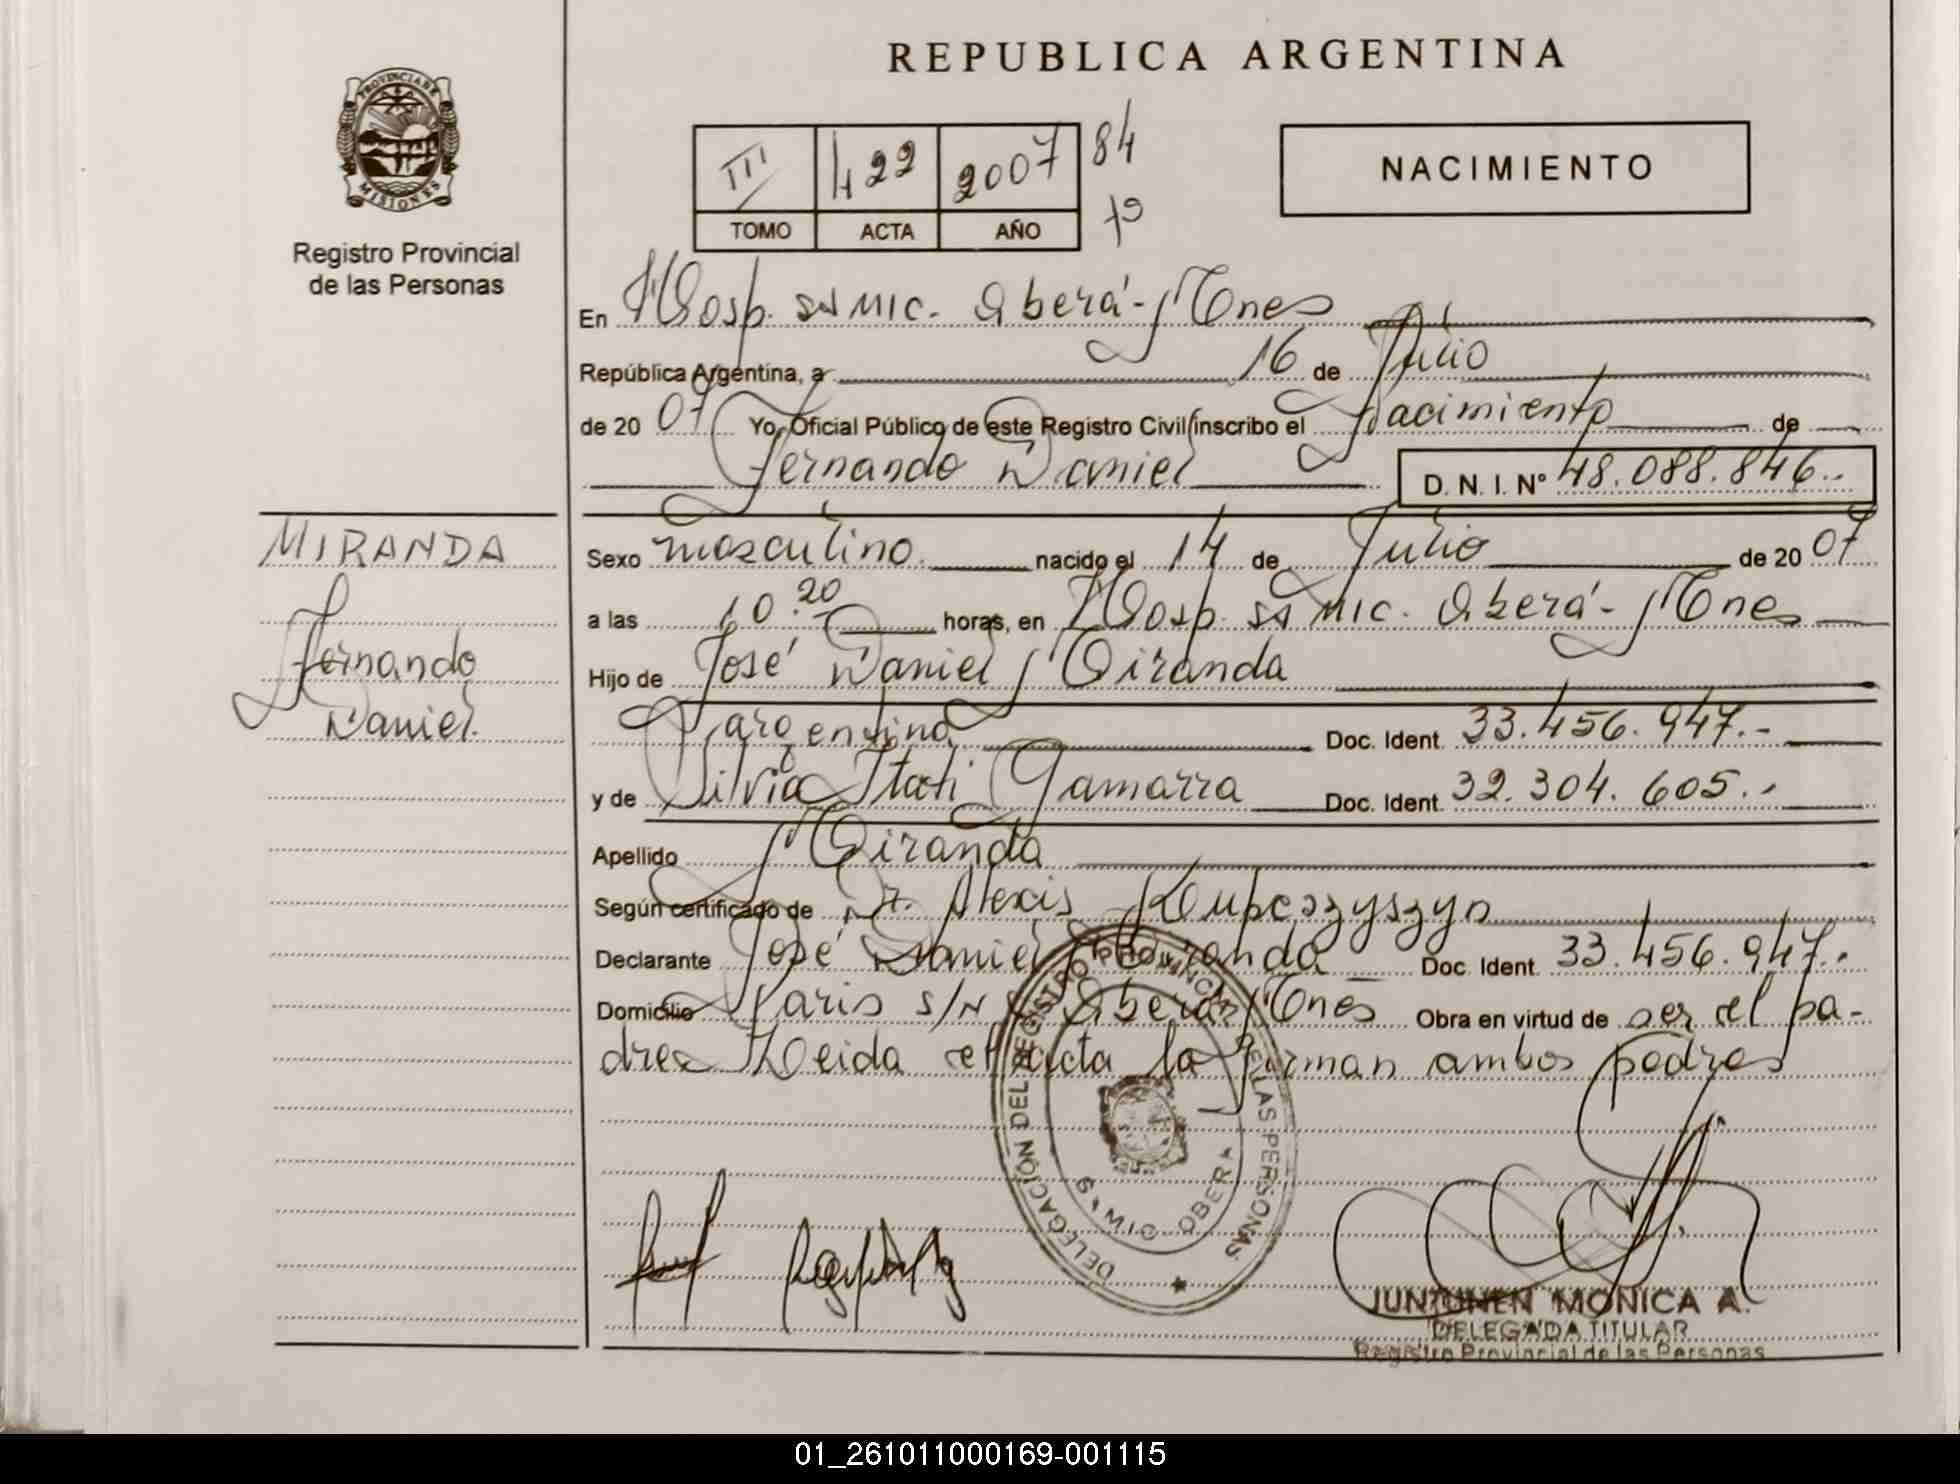 REPUBLICA ARGENTINA
PROVINCIA DE MISIONES
Registro Provincial
de las Personas
III 422 2007 84
TOMO ACTA AÑO
NACIMIENTO
En Hosp. SAMIC. Oberá-Mnes
República Argentina, a 16 de Julio
de 2007 Yo, Oficial Público de este Registro Civil inscribo el Nacimiento de
Fernando Daniel D. N. I. Nº 48.088.846.-
MIRANDA
Fernando
Daniel.
Sexo masculino. nacido el 14 de Julio de 2007
a las 10.20 horas, en Hosp. SAMIC. Oberá-Mnes
Hijo de José Daniel Miranda
argentino Doc. Ident. 33.456.947.-
y de Silvia Itatí Gamarra Doc. Ident. 32.304.605.-
Apellido Miranda
Según certificado de Dr. Alexis
Declarante José Daniel Miranda Doc. Ident. 33.456.947.-
Domicilio Paris s/N Oberá Mnes Obra en virtud de ser el pa-
dre Leida el Acta la firman ambos padres
DELEGACIÓN DEL REGISTRO PROVINCIAL DE LAS PERSONAS
SAMIC OBERA
JUNTUNEN MONICA A.
DELEGADA TITULAR
Registro Provincial de las Personas
01_261011000169-001115